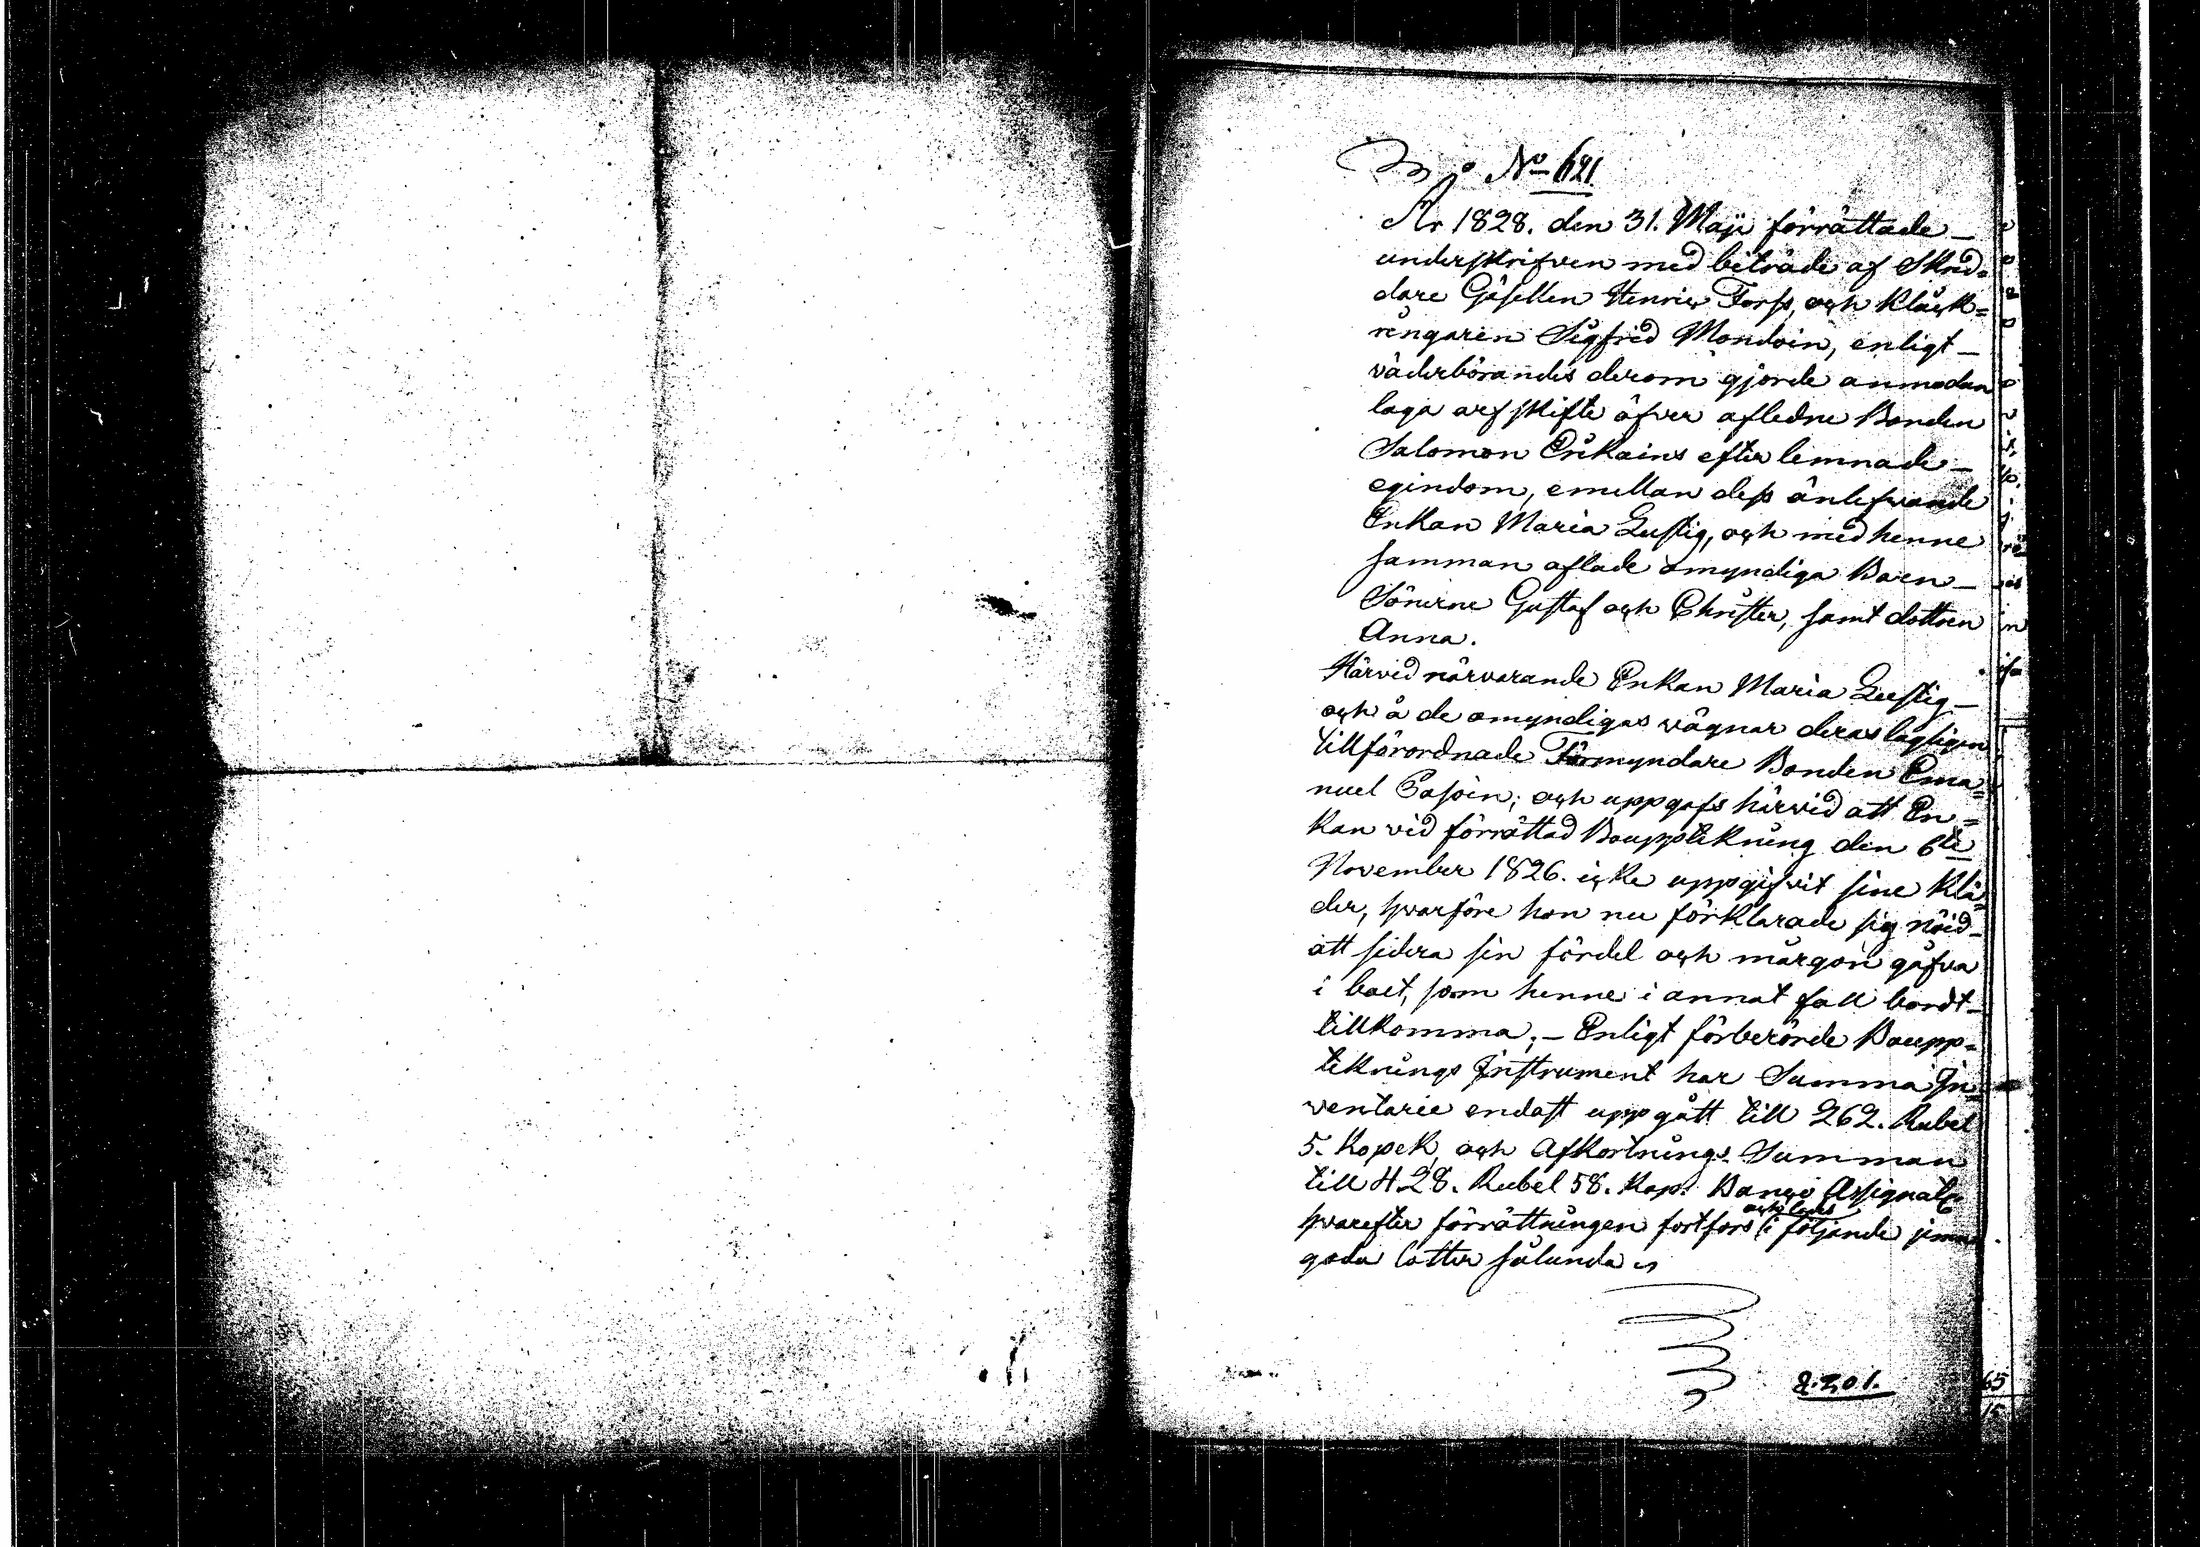 No 621.
År 1828. den 31. Maji förrättade
underskrifven med biträde af Skräd=
dare Gesellen Henric Forss, och Klåck=
ringaren Sigfrid Mondoin, enligt
väderbörandes derom gjorde anmodan
laga arfskifte öfver aflednе Bonden
Salomon Erikains efterlemnade
egindom, emellan dess änlefvande
Enkan Maria Lustig, och med henne
samman aflade omyndiga Baren
Sönerne Gustaf och Christer, samt dottren
Anna.
Härvid närvarande Enkan Maria Lustig
och å de omyndigas vägnar deras lagligen
tillförordnade Förmyndare Bonden Ema=
nuel ; och uppgafs härvid att En=
kan vid förrättad Bouppteknung den 6te
November 1826. icke uppgifvit sine Klä=
der, hvarföre hon nu förklarade sig nöid
att sidra sin fördel och mårgon gåfva
i boet, som henne i annat fall bordt
tillkomma. – Enligt förberörde Boupp=
teknings Instrument har Summa In
ventarie endast uppgått till 262. Rubel
5. Kopek, och Afkortnings Summan
till 428. Rubel 58. Kop. Banco Assignat
hvarefter förrättningen fortfors i följande
goda lötter sålunda
2.201.
65